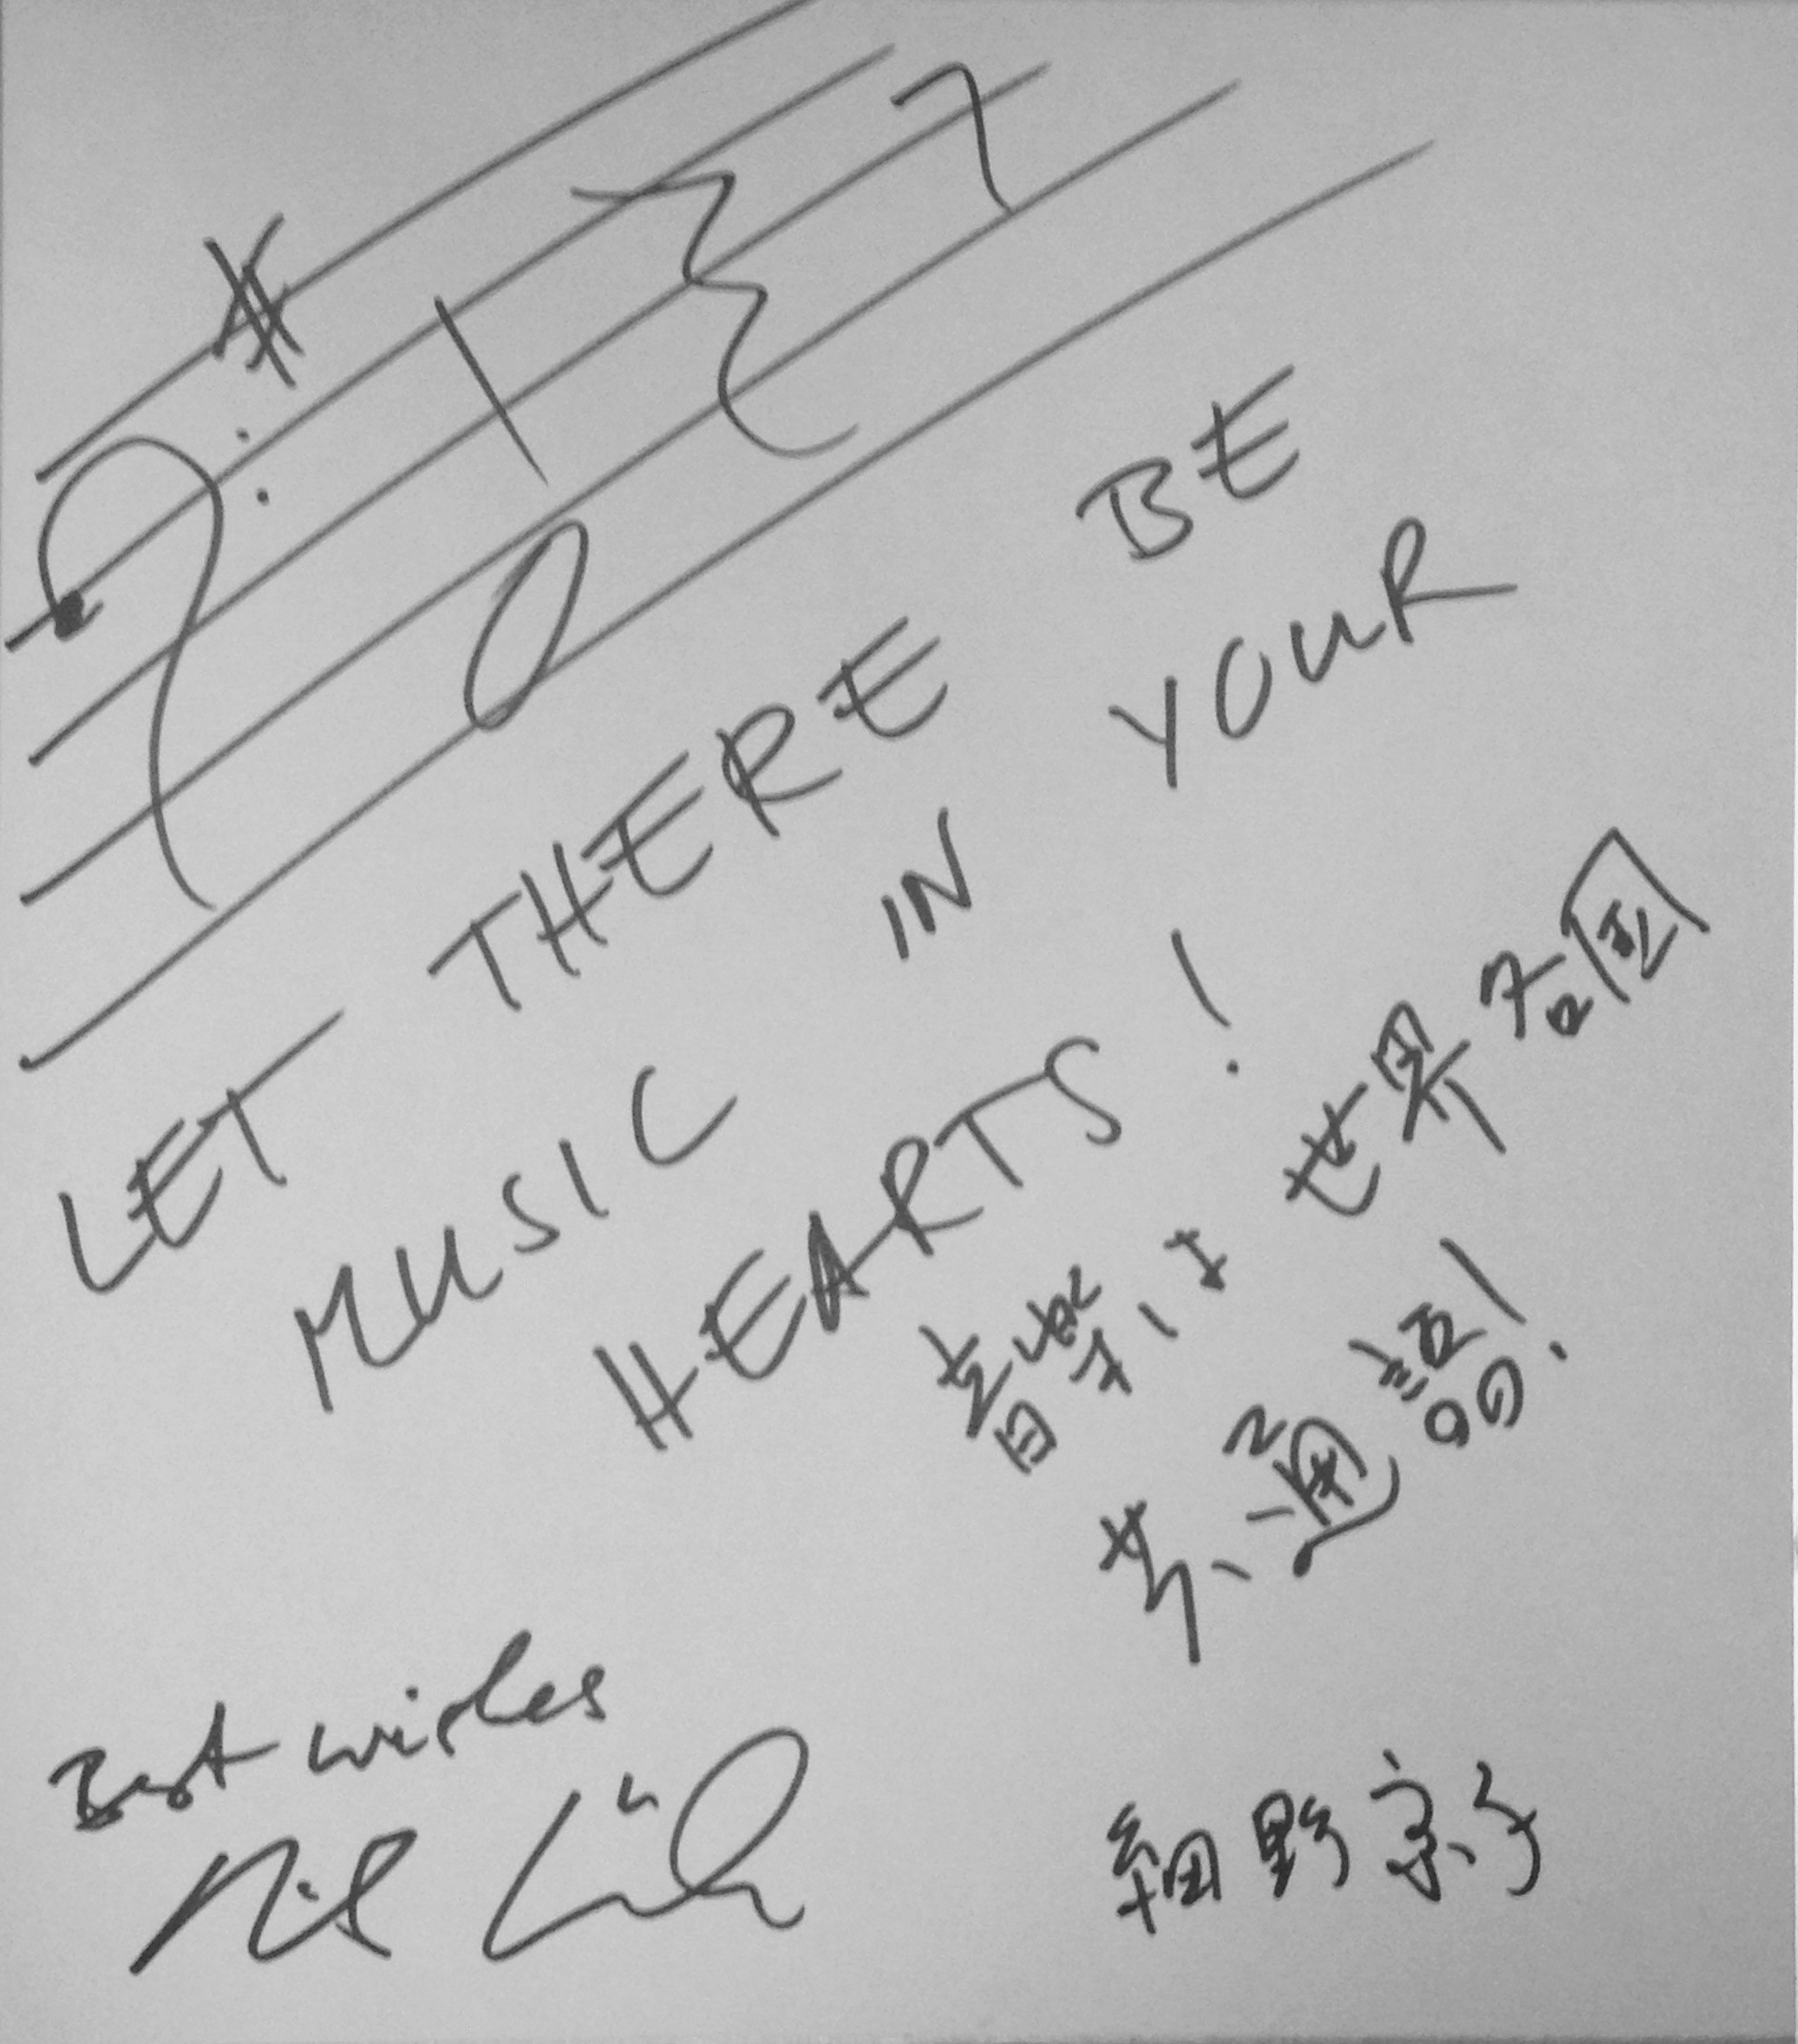 LET THERE BE
MUSIC IN YOUR
HEARTS!
音楽は世界各国
共通語!
Best wishes
細野京子